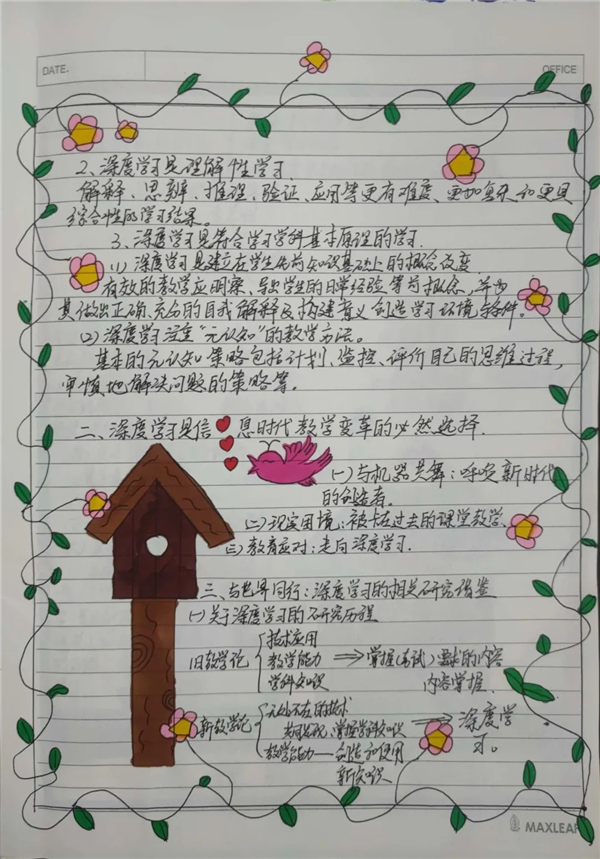 DATE.
OFFICE
2、深度学习是理解性学习.
解释、思辨、推理、验证、应用等更有难度、更加复杂和更具
综合性的学习结果。
3、深度学习是符合学习学科基本原理的学习.
(1) 深度学习是建立在学生先前知识基础上的概念改变
有效的教学应明察、导出学生的日常经验等前概念,并为
其做出正确、充分的自我解释及构建意义创造学习环境与条件。
(2)深度学习注重“元认知”的教学方法。
基本的元认知策略包括计划、监控、评价自己的思维过程,
审慎地解决问题的策略等。
二、深度学习是信息时代教学变革的必然选择.
(一)与机器共舞:呼唤新时代
的创造者。
(二)现实困境:被卡在过去的课堂教学.
(三)教育应对:走向深度学习.
三、与世界同行:深度学习的相关研究借鉴
(一)关于深度学习的研究历程
旧教学论
技术实用
教学能力
学科知识
⇒掌握(考试)要求的内容
内容掌握.
新教学论
无处不在的技术
共同发现、掌握学科知识
教学能力—创造和使用
新知识
⇒深度学
习。
MAXLEAF